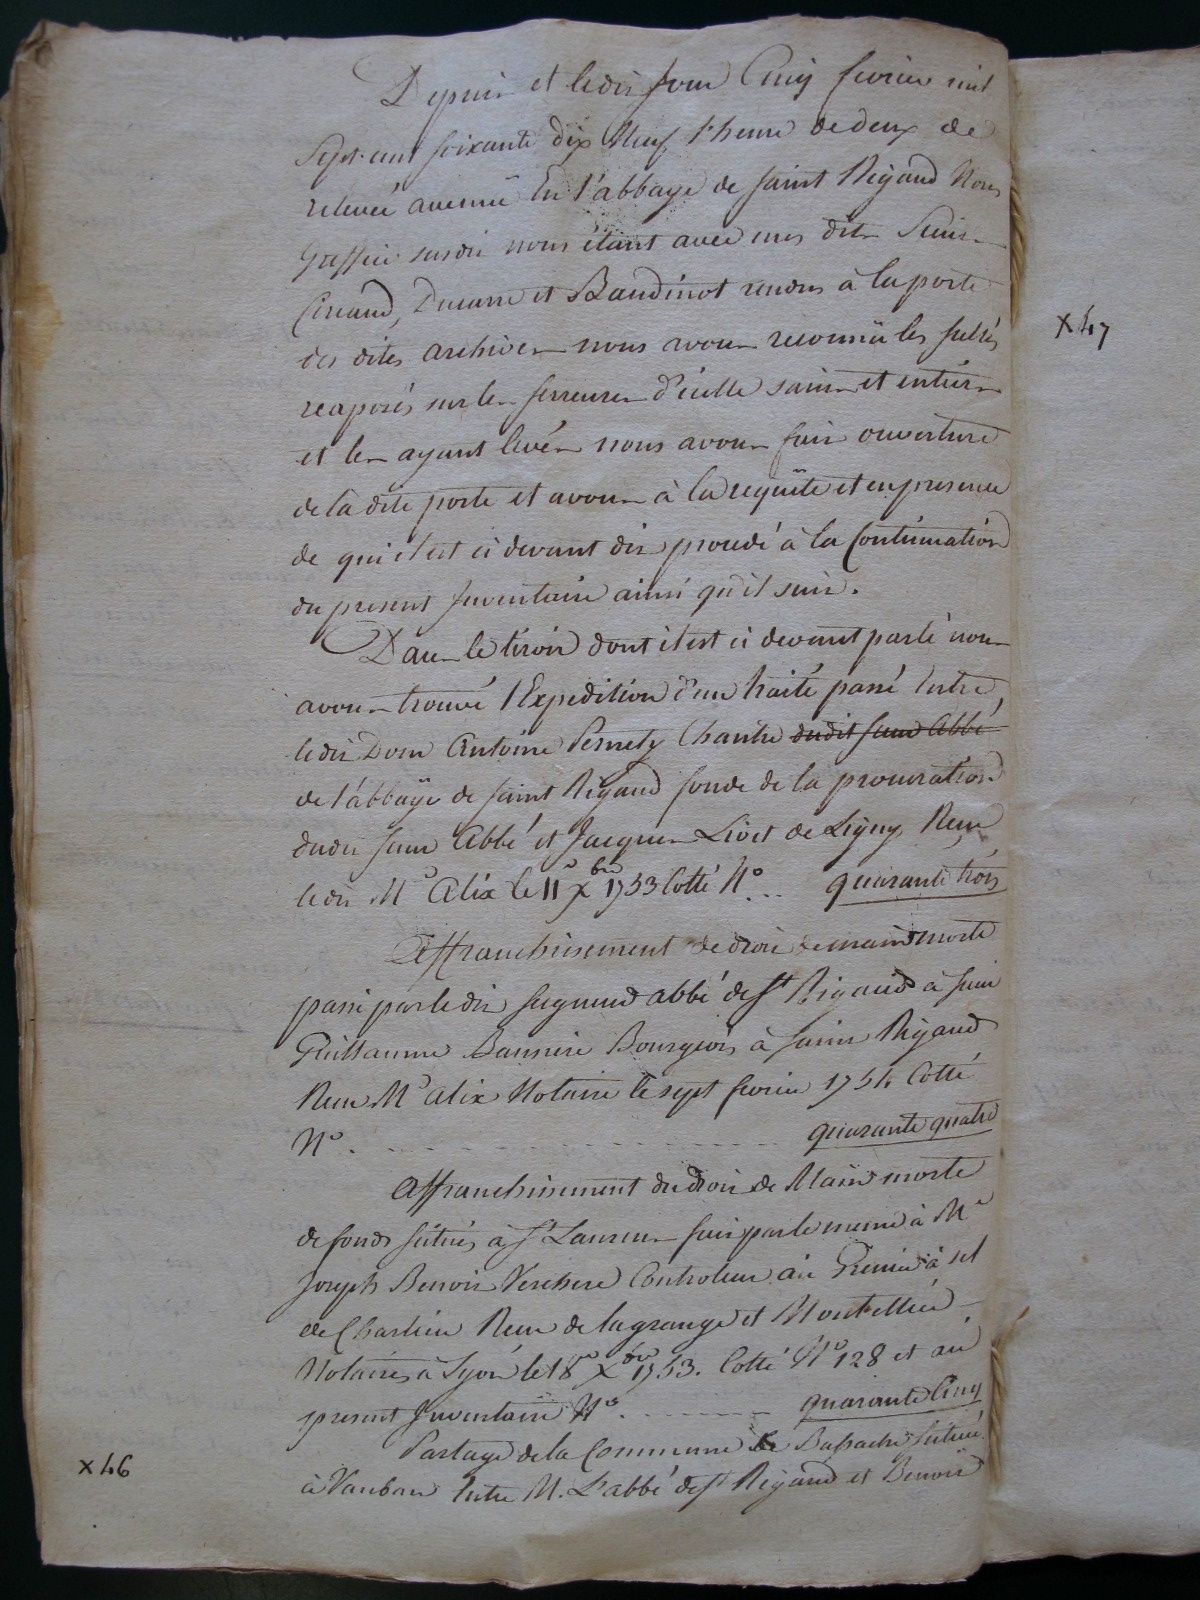 Depuis et ledit jour Cinq fevrier mil
Sept cent soixante dix Neuf l'heure de deux de
relevée avenuë En l'abbaye de saint Rigaud Nous
Greffier susdit nous étant avec mes dits Sieurs
Ducarre et Baudinot rendus à la porte
des dites archives nous avons reconnüe les scellés
réaposés sur les serreures d'icelle sains et entiers
et les ayant levés nous avons fait ouverture
de la dite porte et avons à la requête et en presence
de qui il est ci devant dit procedé à la Continuation
du present Inventaire ainsi qu'il suit.
Dans le tiroir dont il est ci devant parlé nous
avons trouvé l'Expedition d'un traité passé Entre
ledit Dom Antoine Pernety Chantre dudit sieur Abbé
de l'abbaÿe de saint Rigaud fondé de la procuration
dudit sieur Abbé et Jacques Livet de Ligny Reçu
ledit Me Alix le 11e Xbre 1753 Cotté No... quarante trois
Affranchissement de droit de main morte
passé par ledit seigneur abbé de St Rigaud à sieur
Guillaume Bourgeois à saint Rigaud
Reçu Me alix Notaire le sept fevrier 1754 Cotté
No. quarante quatre
Affranchissement du droit de Main morte
de fonds situés à St Laurent fait par le meme à Me
Joseph Benoit Verchere Controleur au Grenier à sel
de Charlieu Reçu de lagrange et Montellier
Notaires à Lyon le 18me Xbre 1753. Cotté No 128 et au
present Inventaire No. quarante Cinq
Partage de la Commune de située
à Vauban Entre M. L'abbé de St Rigaud et Benoit
x 46
x 47